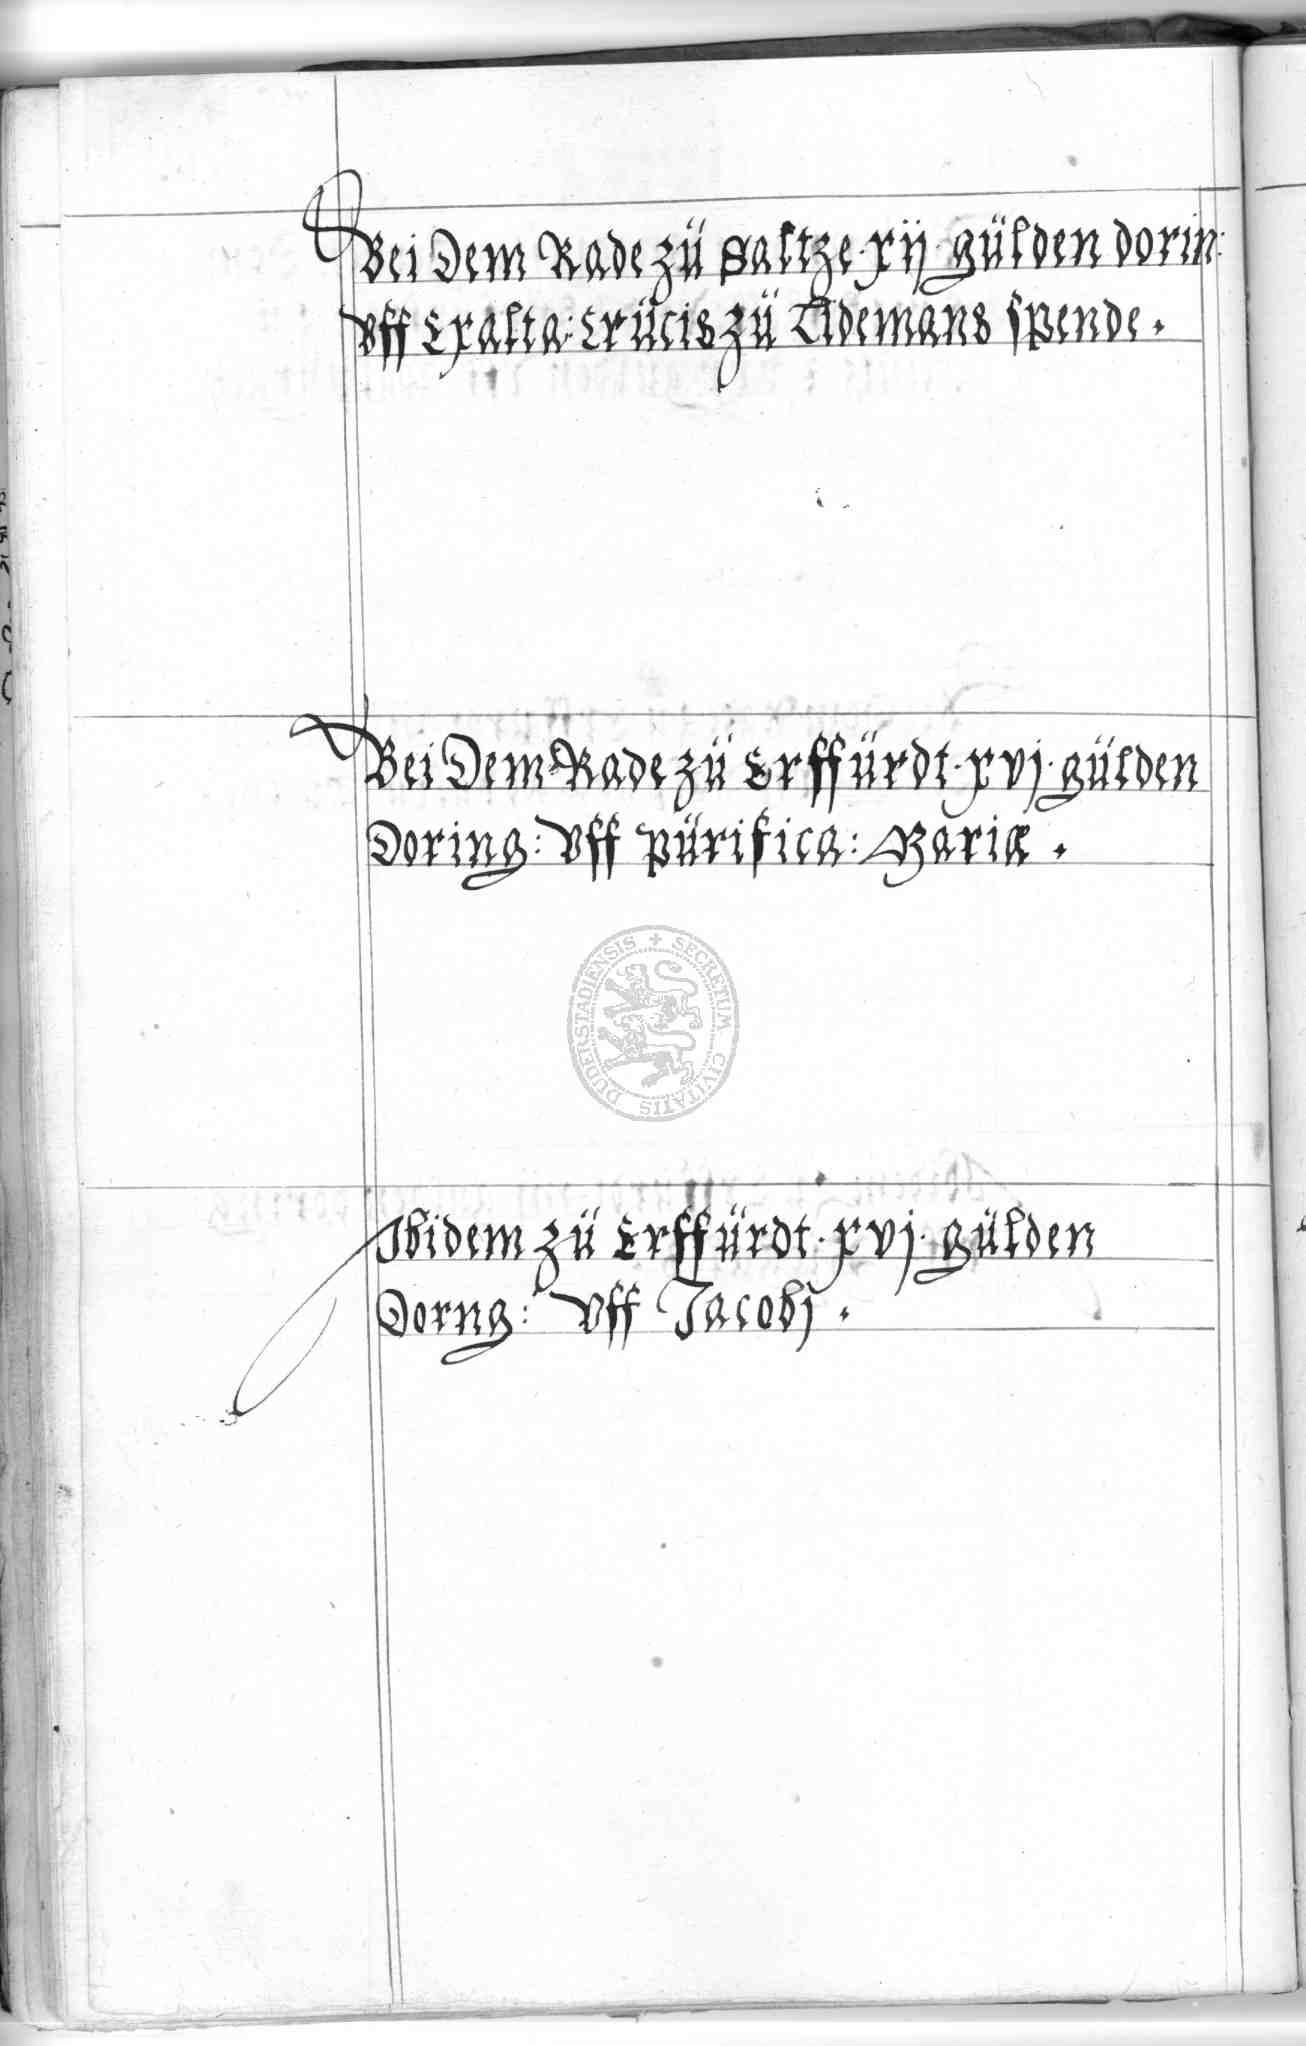 Bei Dem Rade zü Saltze · xij · gülden dorin:
vff Exalta: Crücis zü Tidemans spende.
Bei Dem Rade zü Erffürdt · xvj · gülden
Doring: Vff pürifica: Mariæ.
SECRETUM CIVITATIS DUDERSTADIENSIS
Ibidem zü Erffürdt · xvj · gülden
Dorng: Vff Jacobj.